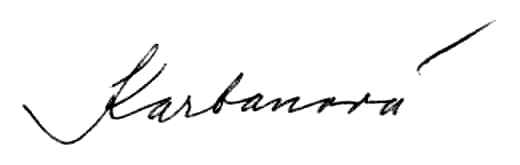 Karbanová